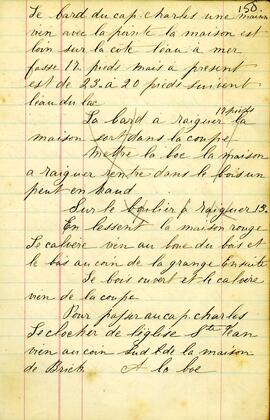 150.
Le bard du cap. charles une maison
ven avec la pointe la maison est
loin sur la cote leau à mer
fasse 17 pieds mais a present
est de 23 à 20 pieds suivent
leau du lac
La bard a raiguer la 17 pieds
maison sort dans la coupe
Mettre la boe la maison
a raiguer rentre dans le bois un
peut en haud.
Sur le boulier à raiguer 15.
En lessent la maison rouge
Le calvere ven au boue du bois et
le bas au coin de la grange Ensuite
Le bois ouvert et le calvere
ven de la coupe
Pour passer au cap. charles
Le clocher de léglise Ste Jean
ven au coin Sud E de la maison
de Brick A la boe